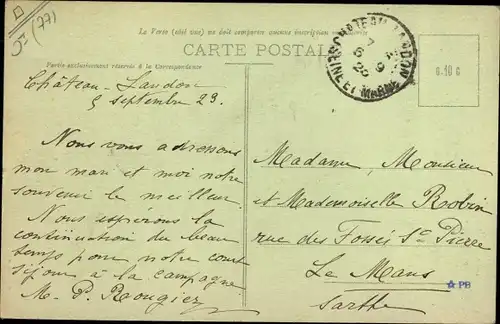 (77)
Le Verso (côté vue) ne doit comporter aucune inscription
CARTE POSTALE
Partie exclusivement réservée à la Correspondance
CHATEAU-LANDON
SEINE ET MARNE
0.10 G
Château-Landon
5 septembre 29.
Nous vous adressons
mon mari et moi notre
souvenir le meilleur.
Nous espérons la
continuation du beau
temps pour notre court
séjour à la campagne
M. P. Rougier
Madame, Monsieur
et Mademoiselle Robin
rue des Fossés St Pierre
Le Mans
Sarthe
PB